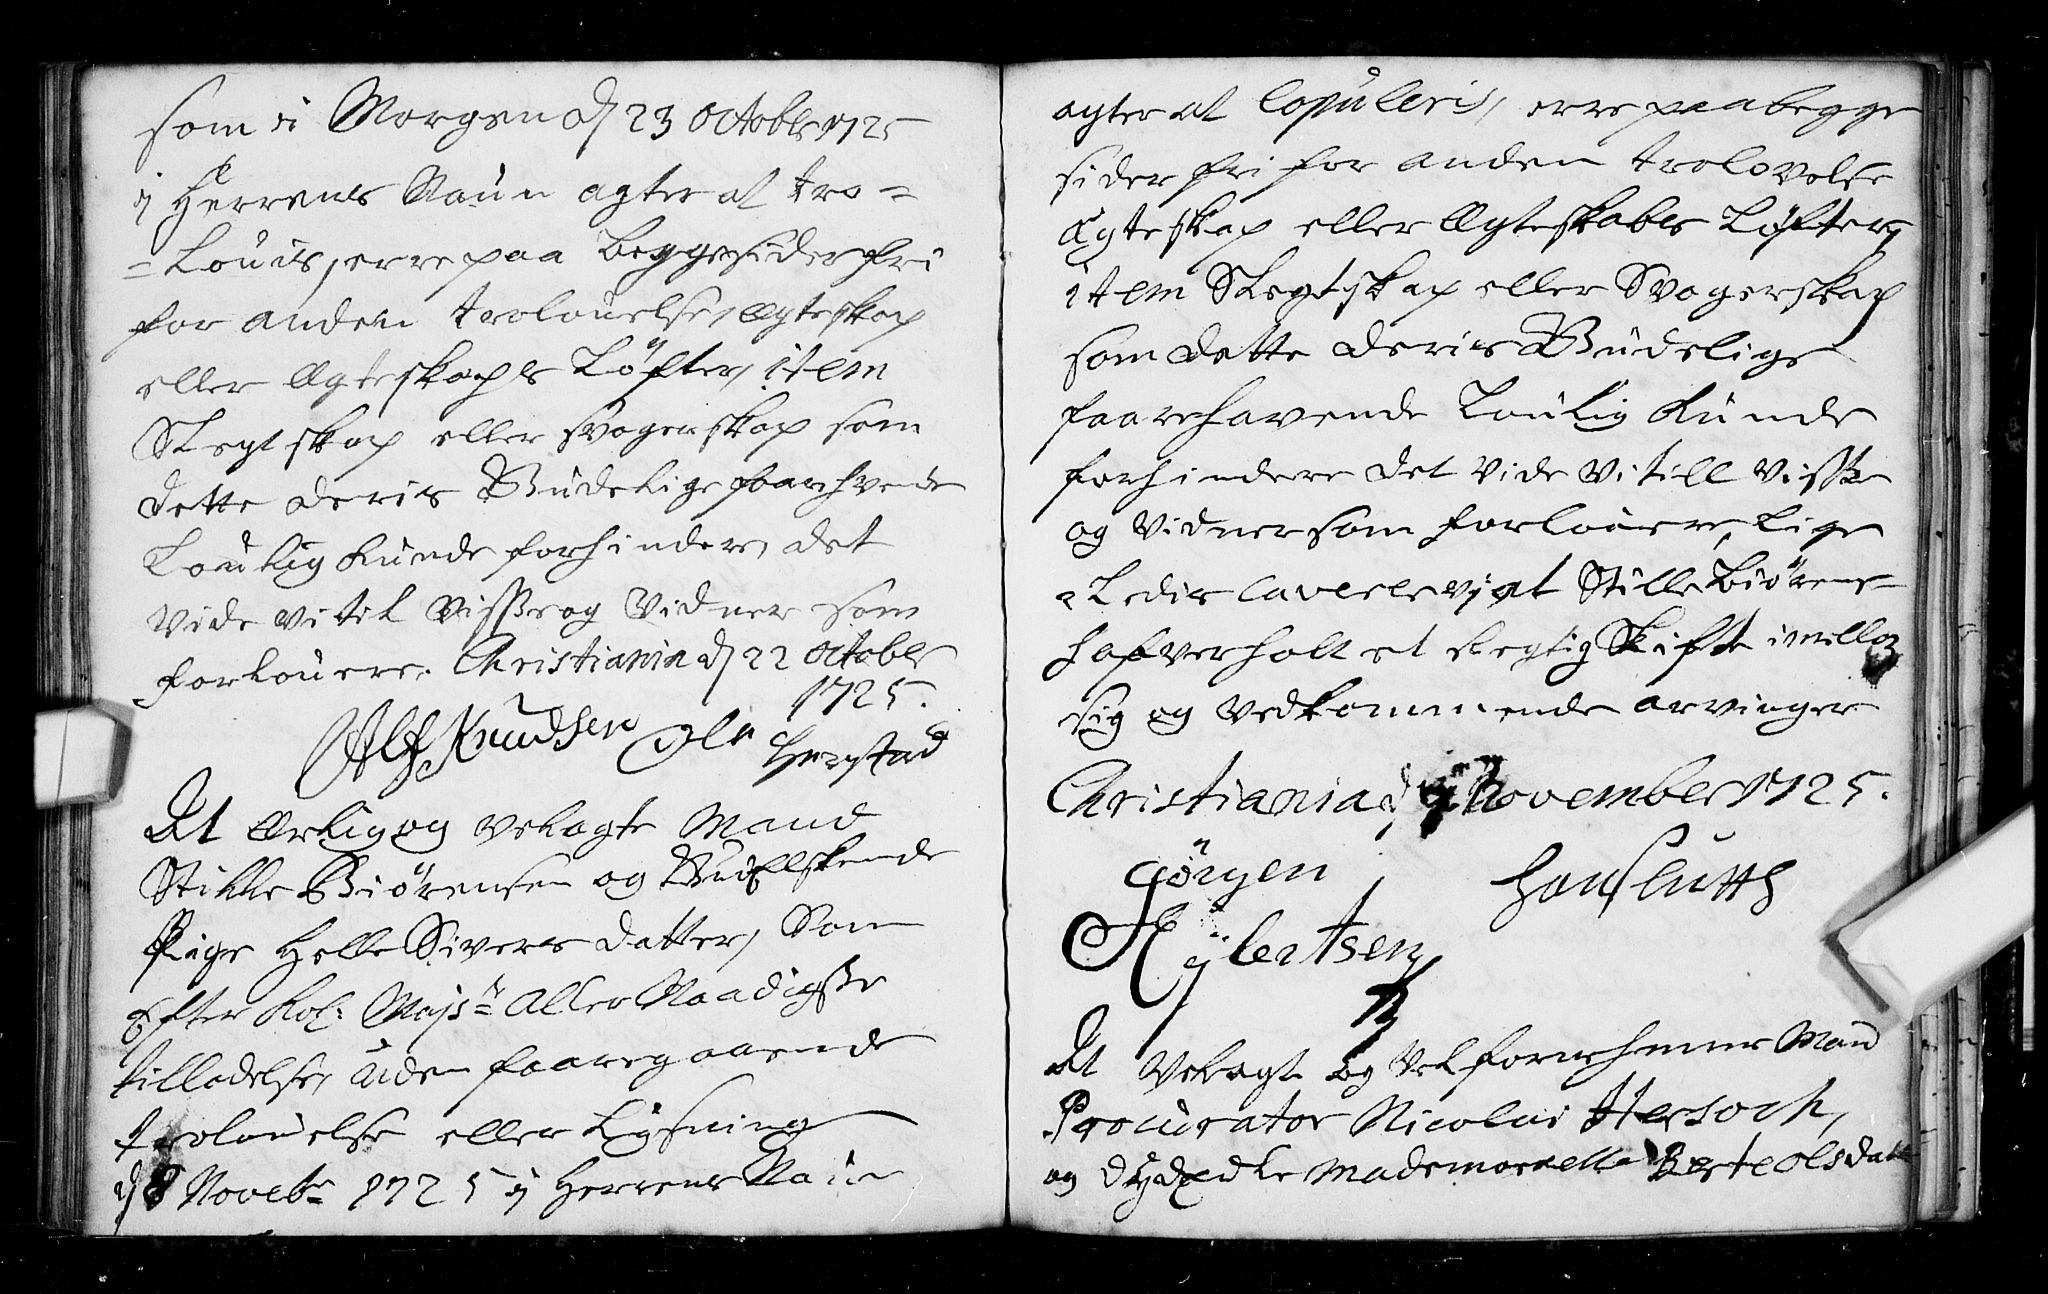 som i Morgen d 23 October 1725
i Herrens Naun agter at tro=
=Louis, erre paa begge sider fri
for anden trolouelse, Ægteskap
eller Ægteskaps Løfter, item
Slegtskap eller svogerskap som
dette deris Gudelige forehavende
Loulig kunde forhindere, det
vide vi till visse og vidner som
forlouere. Christiania d 22 October
1725.
Alf Knudsen Ole
Herstad
At Ærlig og velagte Mand
Stille Biørensen og Gudelskende
Pige Helle Sivers datter, Som
Efter Kol: Mayts Aller Naadigste
tilladelse, uden foregaaende
trolouelse eller Lysning
d 8 Novebr 1725 i Herrens Naun
agter at Copuleris, erre paa begge
sider fri for anden trolovelse
Ægteskap eller Ægteskabs Løfter,
item Slegtskap eller Svogerskap
som dette deris Gudelige
faarehavende Loulig kunde
forhindere det vide vi till visse
og vidner som forlouere, Lige
=Ledis Caverer vj at Stille Biørens=
hafver holt et rigtig Skifte imellom
sig og vedkommende arvinger
Christiania d November 1725.
Jörgen Hans Lutth
Eylertsen
At Velagt og Velfornehmme Man
Procurator Nicolai Hersoch,
og dydædle Mademoeselle Berte Olsdatt